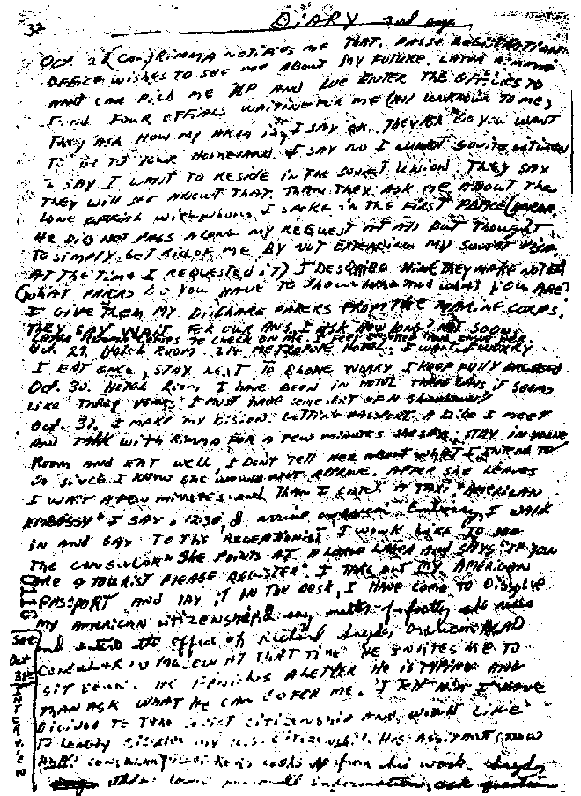 32
DIARY 2nd page
Oct. 28 (con) RIMMA NOTIFIES ME THAT PASS & REGISTRATION
OFFICE WISHES TO SEE ME ABOUT MY FUTURE. LATER RIMMA
AND CAR PICK ME UP AND WE ENTER THE OFFICES TO
FIND FOUR OFFICALS WAITING FOR ME (ALL UNKNOWN TO ME)
THEY ASK HOW MY ARM IS, I SAY O.K. THEY ASK DO YOU WANT
TO GO TO YOUR HOMELAND. I SAY NO I WANT SOVITE
I SAY I WANT TO RESIDE IN THE SOVIET UNION. THEY SAY
THEY WILL SEE ABOUT THAT. THEN THEY ASK ME ABOUT THE
LONE OFFICAL WITH WHOM I SPOKE IN THE FIRST PLACE
HE DID NOT PASS ALONG MY REQUEST AT ALL BUT THOUGHT
TO SIMPLY GET RID OF ME BY NOT EXTENDING MY SOVIET
AT THE TIME I REQUESTED IT) I DESCRIBE HIM (THEY MAKE NOTES)
(WHAT PAPERS DO YOU HAVE TO SHOW WHO AND WHAT YOU ARE?
I GIVE THEM MY DISCHARGE PAPERS FROM THE MARINE CORPS.
THEY SAY WAIT FOR OUR ANS. I ASK HOW LONG? NOT SOON.
LATER RIMMA COMES TO CHECK ON ME. I FEEL
Oct. 29. HOTEL ROOM 214 METROPOLE HOTEL. I WAIT. I WORRY
I EAT ONCE, STAY NEXT TO PHONE WORRY I KEEP FULLY DRESSED
Oct. 30. HOTEL ROOM I HAVE BEEN IN HOTEL THREE DAYS, IT SEEMS
LIKE THREE YEARS I MUST HAVE SOME SORT OF A SHOWDOWN!
Oct. 31. I MAKE MY DISION. GETTING PASSPORT AT I MEET
AND TALK WITH RIMMA FOR A FEW MINUTES SHE SAYS: STAY IN YOUR
ROOM AND EAT WELL, I DON'T TELL HER ABOUT WHAT I INTEND TO
DO SINCE I KNOW SHE WOULD NOT APPROVE. AFTER SHE LEAVES
I WAIT A FEW MINUTES AND THAN I CATCH A TAXI, "AMERICAN
EMBASSY" I SAY. 12:30 I arrive Embassy, I WALK
IN AND SAY TO THE RECEPTIONIST I WOULD LIKE TO SEE
THE CONSULAR SHE POINTS AT A LARGE LAGER AND SAYS "IF YOU
ARE A TOURIST PLEASE REGISTER". I TAKE OUT MY AMERICAN
PASSPORT AND LAY IT ON THE DESK, I HAVE COME TO DISSOLVE
MY AMERICAN CITIZENSHIP. I say matter-of-factly she rises
and enters the office of Richard Snyder HEAD
CONSULAR IN MOSCOW AT THAT TIME. HE INVITES ME TO
SIT DOWN. HE FINISHES A LETTER HE IS TYPING AND
THAN ASK WHAT HE CAN DO FOR ME. I TELL HIM I HAVE
DICIDED TO TAKE SOVIET CITIZENSHIP AND WOULD LIKE
TO legally my U.S. citizenship. HIS ASSISTANT (NOW
looks up from his work.
me information, ask question
0116
See
Oct
31st
INTERVIEW